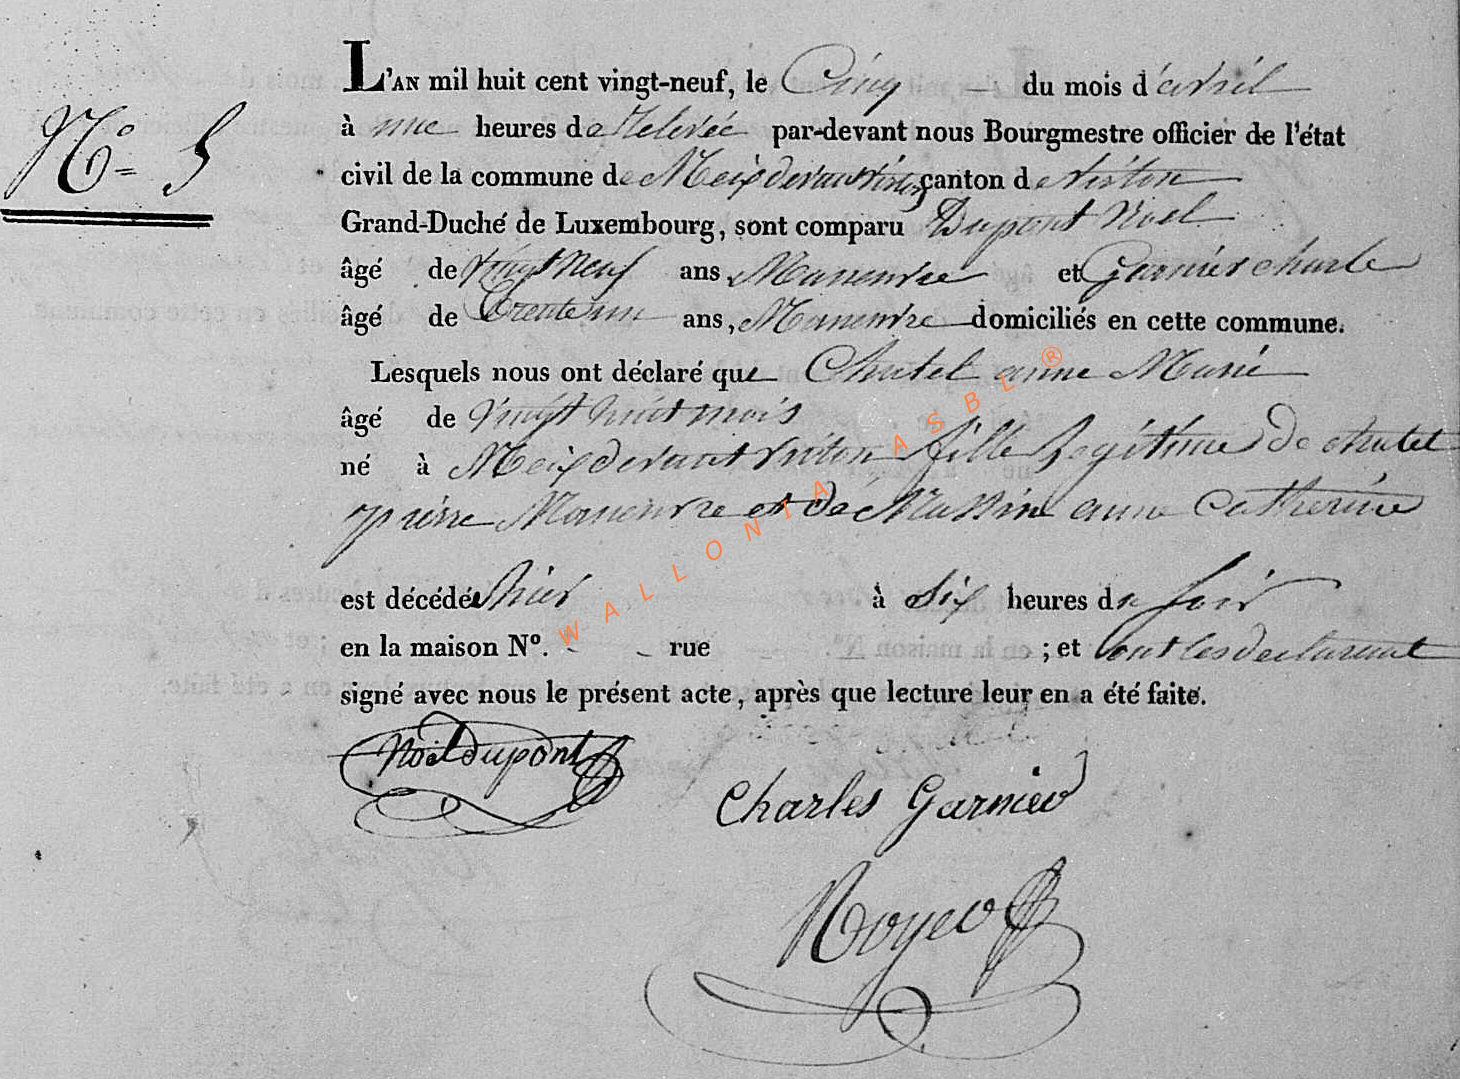 L'AN mil huit cent vingt-neuf, le Cinq du mois d'avril
N° 5
à une heures de Relevée par-devant nous Bourgmestre officier de l'état
civil de la commune de Meix devant virton canton de virton
Grand-Duché de Luxembourg, sont comparu Dupont Noel
âgé de vingt neuf ans Manenvre et Garnier charle
âgé de Trente un ans, Manenvre domiciliés en cette commune.
Lesquels nous ont déclaré que Chutel anne Marie
âgé de vingt huit mois
né à Meix devant virton fille legitime de chutel
pierre Manenvre et de Massin anne Catherine
est décédée hier à Six heures du soir
en la maison N°. - - rue ; et ont les declarant
signé avec nous le présent acte, après que lecture leur en a été faite.
Noël dupont
Charles Garnier
Royer
WALLONIA ASBL ®